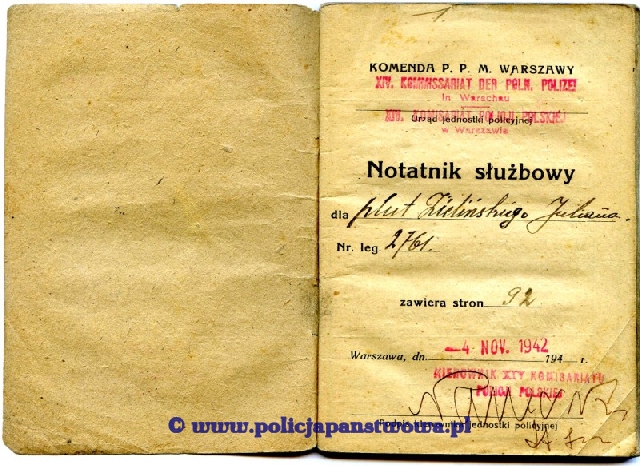 1.
KOMENDA P. P. M. WARSZAWY
XIV. KOMMISSARIAT DER POLN. POLIZEI
in Warschau
XIV. KOMISARIAT POLICJI POLSKIEJ
Urząd jednostki policyjnej
w Warszawie
Notatnik służbowy
dla plut Zielińskiego Juliana.
Nr. leg 2761.
zawiera stron 92
Warszawa, dn. -4 NOV. 1942 194 r.
KIEROWNIK XIV KOMISARIATU
POLICJI POLSKIEJ
Podpis kierownika jednostki policyjnej
© www.policjapanstwowa.pl